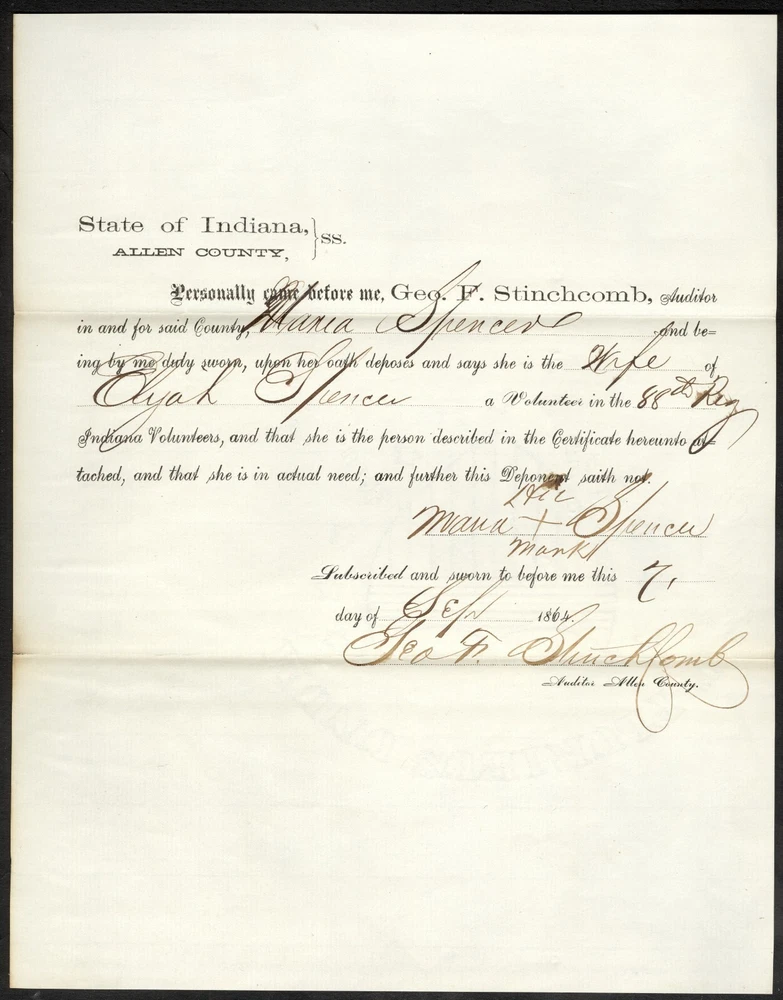 State of Indiana, } ss.
ALLEN COUNTY,
Personally came before me, Geo. F. Stinchcomb, Auditor
in and for said County, Maria Spencer and be=
ing by me duly sworn, upon her oath deposes and says she is the Wife of
Elijah Spencer a Volunteer in the 88th Reg
Indiana Volunteers, and that she is the person described in the Certificate hereunto at=
tached, and that she is in actual need; and further this Deponent saith not.
Her
Maria + Spencer
Mark
Subscribed and sworn to before me this 7,
day of Sept 1864.
Geo. F. Stinchcomb
Auditor Allen County.